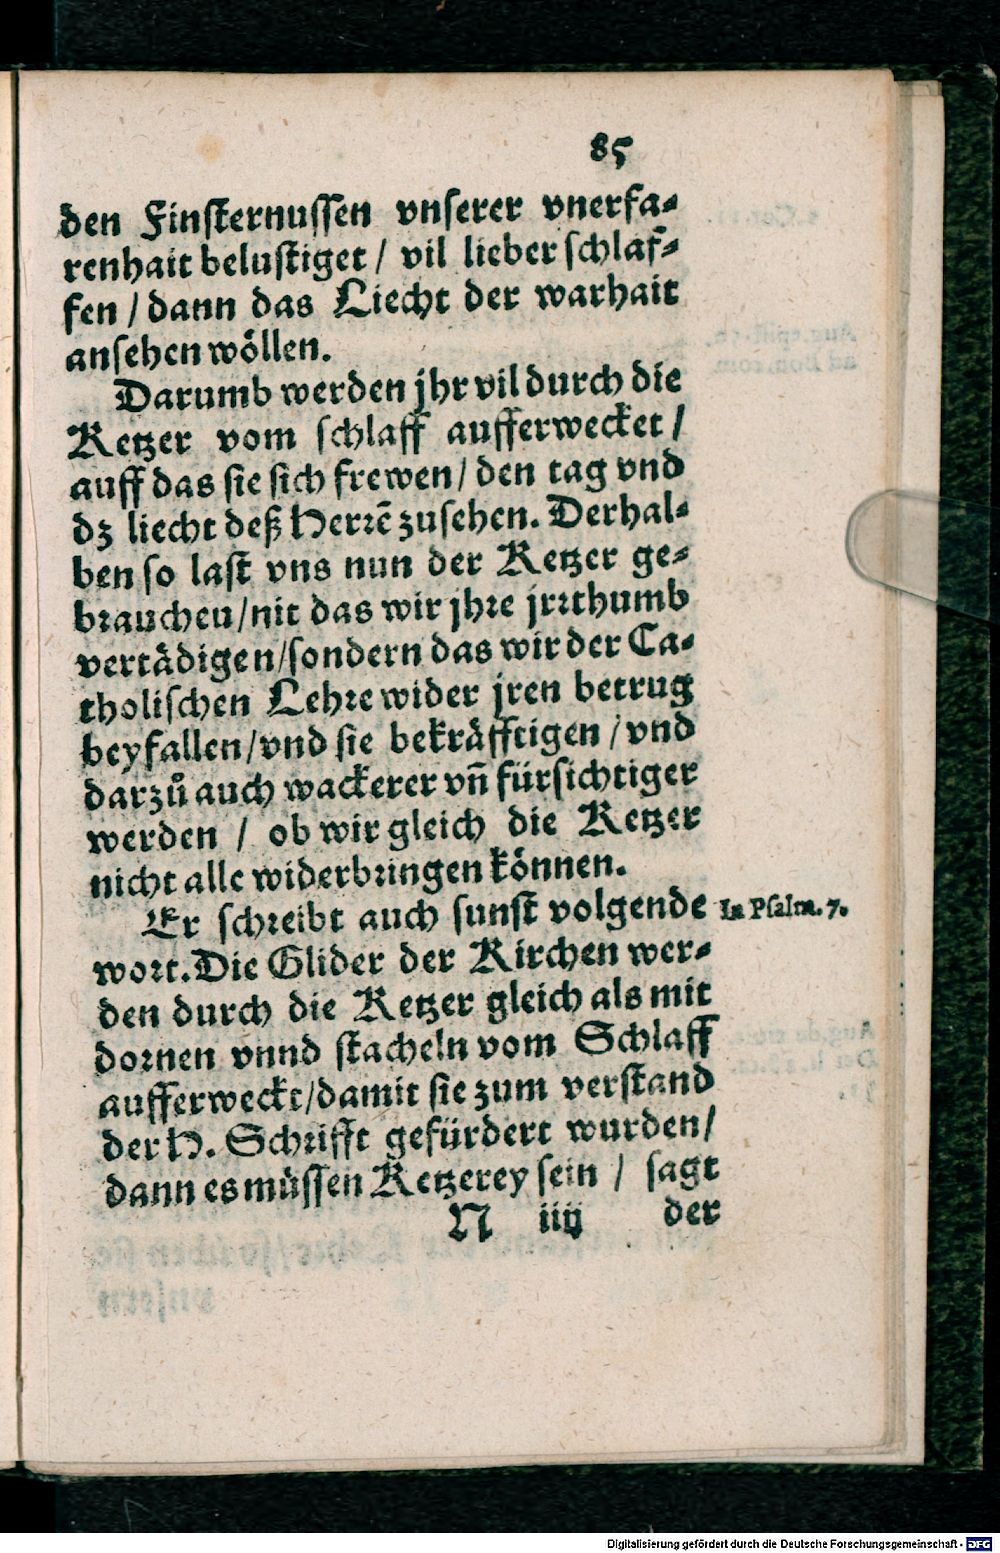 85
den Finſternuſſen vnſerer vnerfa⸗
renhait beluſtiget / vil lieber ſchlaf⸗
fen / dann das Liecht der warhait
anſehen wöllen.
Darumb werden jhr vil durch die
Ketzer vom ſchlaff aufferwecket /
auff das ſie ſich frewen / den tag vnd
dz liecht deß Herrẽ zuſehen. Derhal⸗
ben ſo laſt vns nun der Ketzer ge⸗
brauchen / nit das wir jhre jrrthumb
vertädigen / ſondern das wir der Ca⸗
tholiſchen Lehre wider jren betrug
beyfallen / vnd ſie bekräfftigen / vnd
darzuͦ auch wackerer vñ fürſichtiger
werden / ob wir gleich die Ketzer
nicht alle widerbringen können.
Er ſchreibt auch ſunſt volgende
In Pſalm. 7.
wort. Die Glider der Kirchen wer⸗
den durch die Ketzer gleich als mit
dornen vnnd ſtacheln vom Schlaff
aufferweckt / damit ſie zum verſtand
der H. Schrifft gefürdert wurden /
dann es müſſen Ketzerey ſein / ſagt
N iiij der
Digitalisierung gefördert durch die Deutsche Forschungsgemeinschaft - DFG